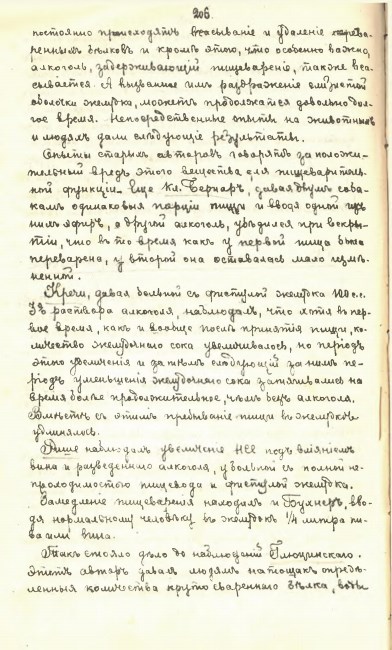 206.
постоянно происходятъ всасыванiе и удаленiе перева-
ренныхъ бѣлковъ и кромѣ этого, что особенно важно,
алкоголь, задерживающiй пищеваренiе, также вса-
сывается. А вызванное имъ раздраженiе слизистой
оболочки желудка, можетъ продолжатся довольно дол-
гое время. Непосредственные опыты на животныхъ
и людяхъ дали слѣдующiе результаты.
Опыты старыхъ авторовъ говорятъ за положи-
тельный вредъ этого вещества для пищеваритель-
ной функцiи. Еще Кл. Бернаръ, давая двумъ соба-
камъ одинаковыя порцiи пищи и вводя одной изъ
нихъ эфиръ, а другой алкоголь, убѣдился при вскры-
тiи, что въ то время какъ у первой пища была
переварена, у второй она оставалась мало измѣ-
ненной.
Кречи, давая больной съ фистулой желудка 100 с.с.
3% раствора алкоголя, наблюдалъ, что хотя въ пер-
вое время, какъ и вообще послѣ принятiя пищи, ко-
личество желудочнаго сока увеличивалось, но перiодъ
этого увеличенiя и затѣмъ слѣдующiй за нимъ пе-
рiодъ уменьшенiя желудочнаго сока затягивались на
время болѣе продолжительное, чѣмъ безъ алкоголя.
Вмѣстѣ съ этимъ пребыванiе пищи въ желудкѣ
удлинялось.
Рише наблюдалъ увеличенiе HCl подъ влiянiемъ
вина и разведеннаго алкоголя, у больной съ полной не-
проходимостью пищевода и фистулой желудка.
Замедленiе пищеваренiя находилъ и Бухнеръ, вво-
дя нормальному человѣку въ желудокъ 1/4 литра пи-
ва или вина.
Такъ стояло дѣло до наблюденiй Глюзинскаго.
Этотъ авторъ давалъ людямъ натощакъ опредѣ-
ленныя количества круто свареннаго бѣлка, воды